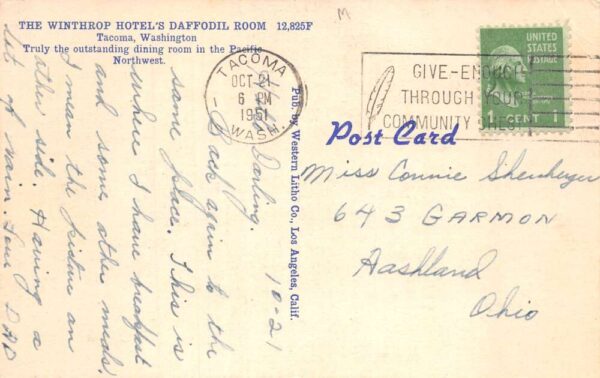 THE WINTHROP HOTEL'S DAFFODIL ROOM 12,825F
Tacoma, Washington
Truly the outstanding dining room in the Pacific
Northwest.
M
TACOMA
OCT 21
6 PM
1951
WASH.
GIVE-ENOUGH
THROUGH YOUR
COMMUNITY CHEST
UNITED
STATES
POSTAGE
CENT 1
Post Card
Pub. by Western Litho Co., Los Angeles, Calif.
10-21
Darling.
- Back again to the
same place. This is
where I have breakfast
and some other meals.
I mean the picture on
other side. Having a
lot of rain. Love DAD
Miss Connie
643 GARMON
Aashland
Ohio